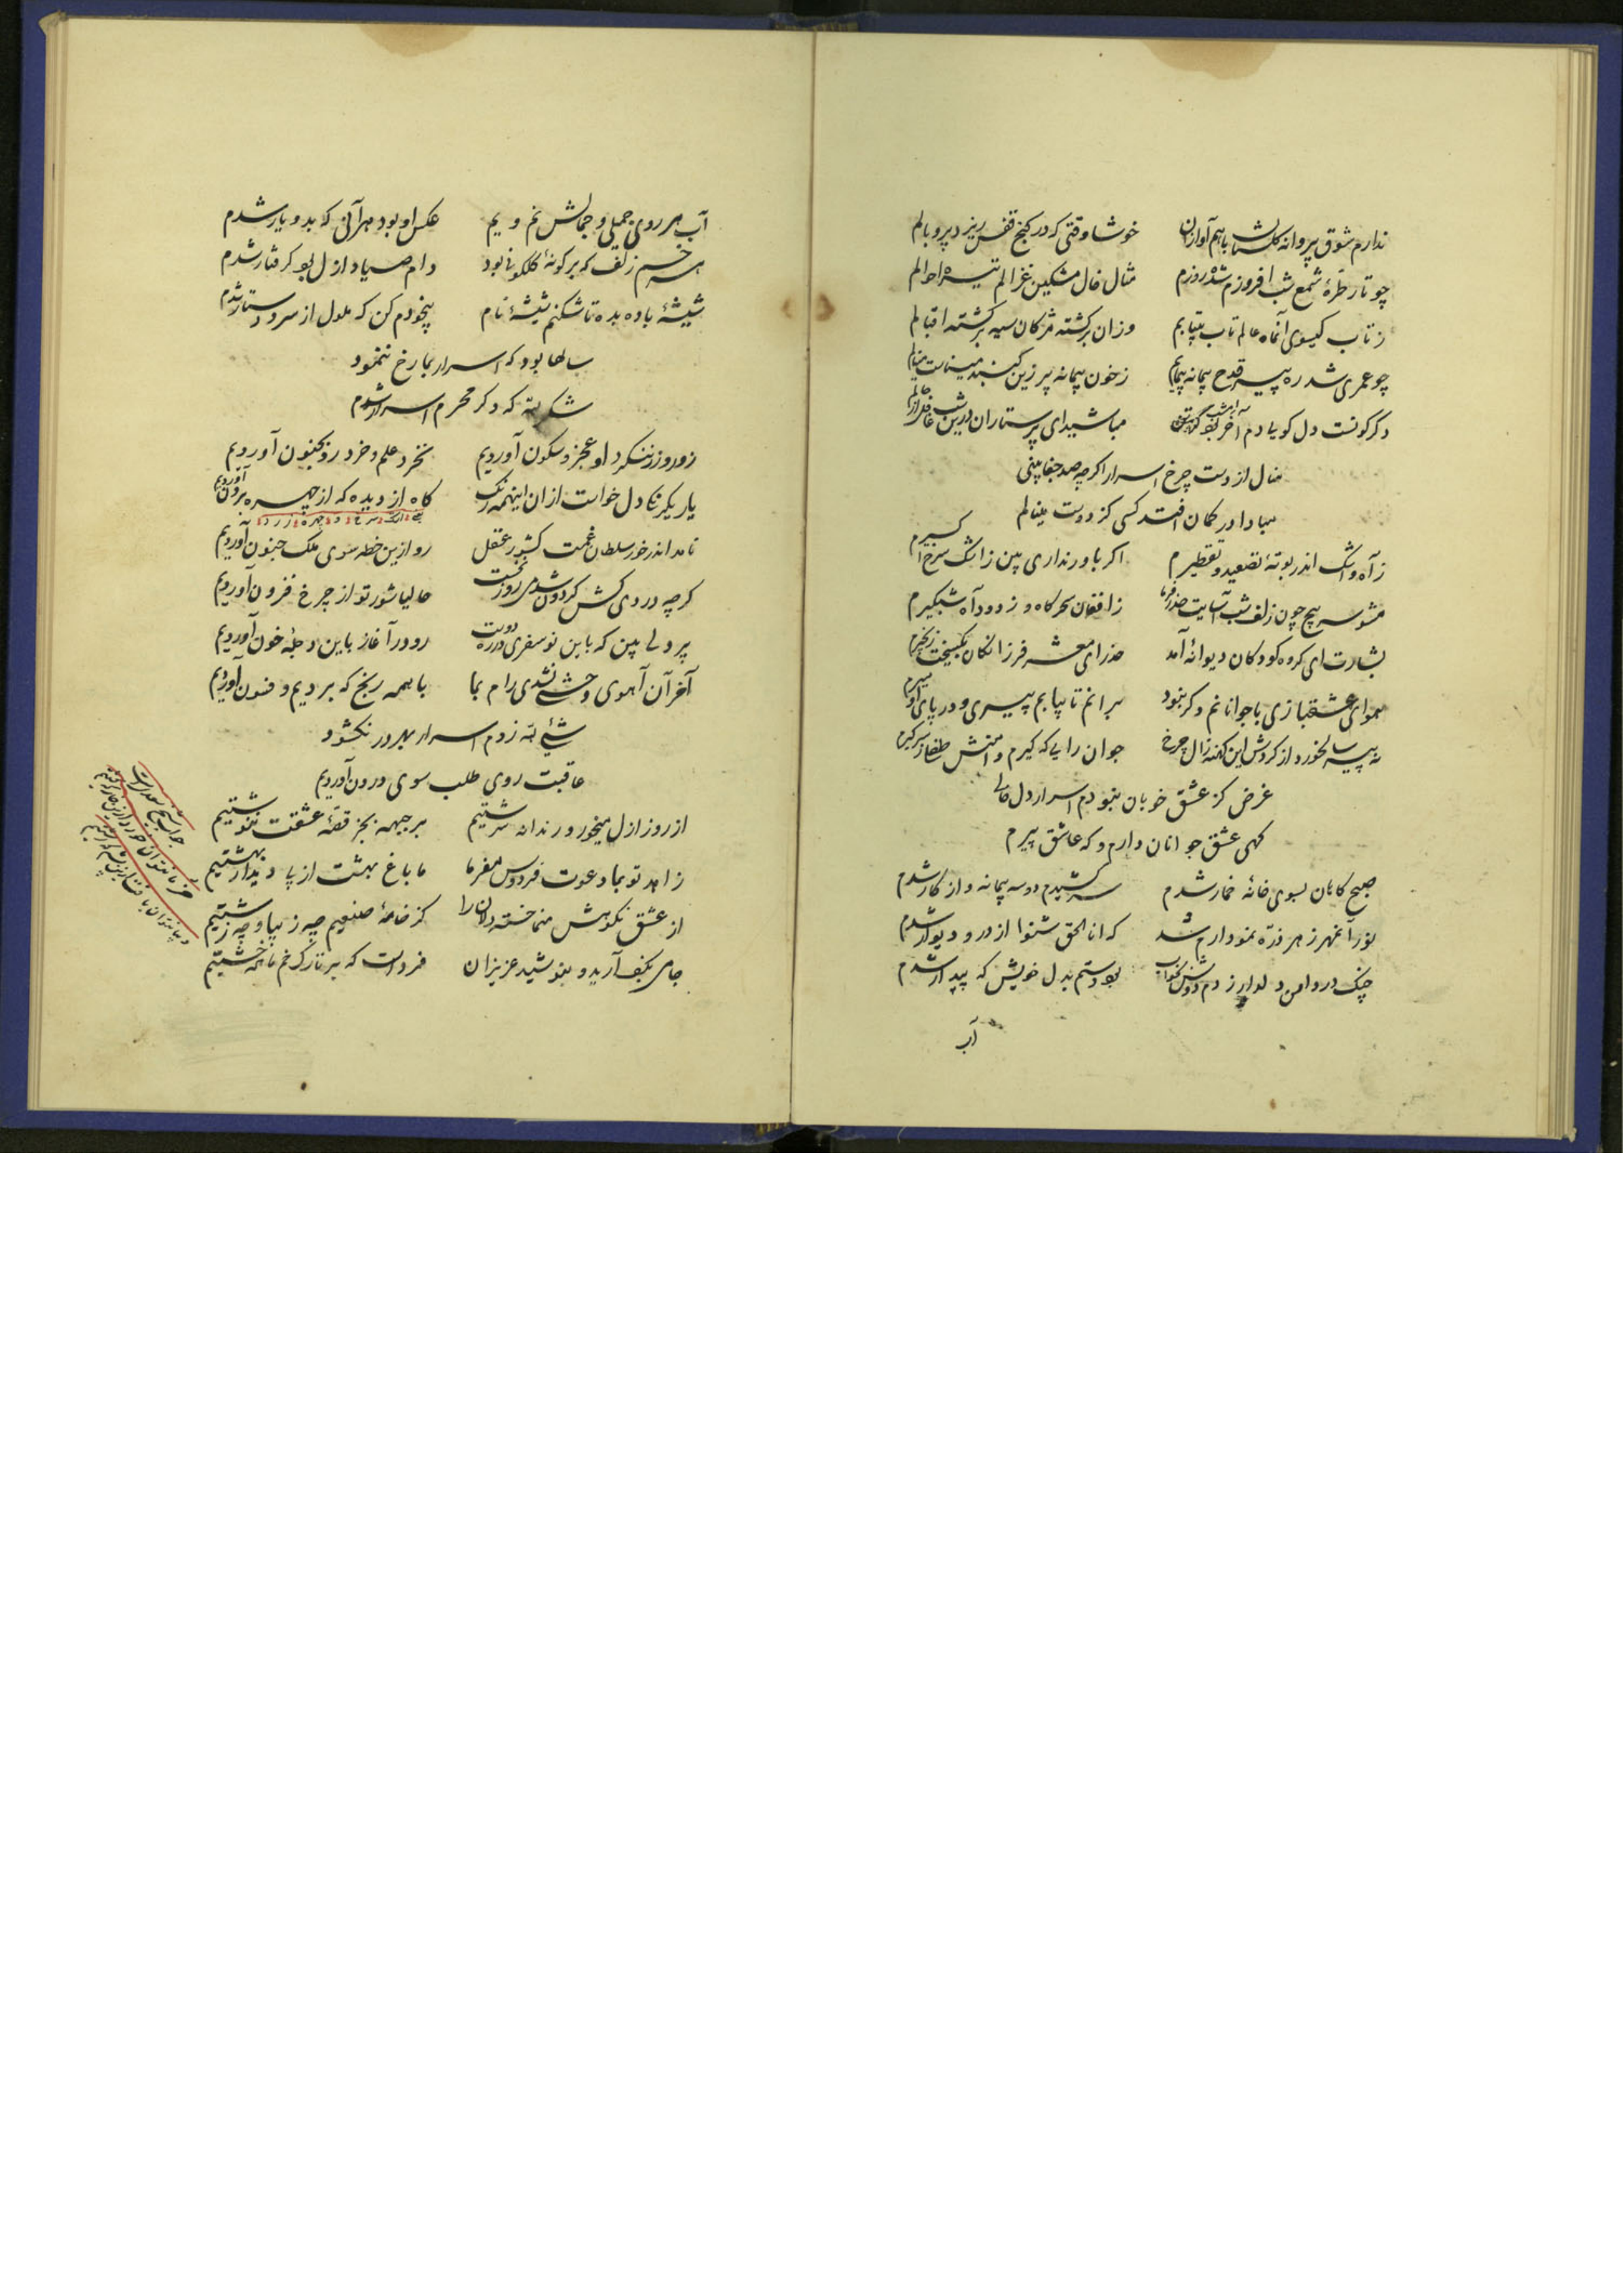 ندارم شوق پرواز گلستان با هم آوازان خوشا وقتی که در کنج قفس ریزد پر و بالم
چو تار طرهٔ شمع شب افروزم شده روزم مثال خال مشکین غزالم تیره احوالم
ز تاب گیسوی آنماه عالم تاب بیتابم وزان برگشته مژگان سیه برگشته اقبالم
چو عمری شد ره پیر قدح پیمانه پیمایم ز خون پیمانه پر زین گنبد میناست مینایم
دگرگونست دل گویا دم آخر بود امشب مباشید ای پرستاران درین شب غافل از حالم
منال از دست چرخ اسرار اگر چه صد جفا بینی
مبادا در گمان افتد کسی کز دوست مینالم
ز آه و اشک اندر بوتهٔ تصعید و تقطیرم اگر باور نداری بین ز اشک سرخ اکسیرم
مشو سرپیچ چون زلف شب آسایت ز افغان سحرگاه و ز دود آه شبگیرم
بشارت ای گروه کودکان دیوانهٔ آمد حذر ای معشر فرزانگان بگسیخت زنجیرم
هوای عشقبازی با جوانانم دگر نبود برانم تا بیابم پیری و در پای او میرم
نه پیر سالخورد از گردش این کهنه زال چرخ جوان رایی که گیرم دامنش طفلا ز سر گیرم
غرض کز عشق خوبان نبودم اسرار دل خالی
گهی عشق جوانان دارم و گه عاشق پیرم
صبح گاهان بسوی خانهٔ خمار شدم سر کشیدم دو سه پیمانه و از کار شدم
نور آنمهر ز هر ذره نمودارم شد که انا الحق شنوا از در و دیوار شدم
چنگ در دامن دلدار زدم دوش بخواب بود دستم بدل خویش که بیدار شدم
آب
آب هر روی جمیلی و جمالش نم و یم عکس او بود بهر آنی که بدو یار شدم
هر خم زلف که بر گونهٔ گلگونی بود دام صیاد ازل بود گرفتار شدم
شیشهٔ باده بده تا شکنم شیشهٔ نام بیخودم کن که ملول از سر و دستار شدم
سالها بود که اسرار بما رخ ننمود
شکر لله که دگر محرم اسرار شدم
زور و زر نبود او عجز و سکون آوردیم نخرد علم و خرد رو بجنون آوردیم
یار یکرنگی دل خواست ازان اینهمه رنگ گاه از دیده گه از چهره برون آوردیم
نامد اندر خور سلطان غمت کشور عقل رو ازین خطه سوی ملک جنون آوردیم
گر چه در روی کش گردون شدی روز نخست حالیا شور تو از چرخ فزون آوردیم
پر دلی بین که باین نو سفری در ره دوست رو در آغاز باین دجلهٔ خون آوردیم
آخر آن آهوی وحشی نشدی رام بما با همه رنج که بردیم و فسون آوردیم
شیء لله زدم اسرار بهر در نگشود
عاقبت روی طلب سوی درون آوردیم
از روز ازل میخور و رندانه سرشتیم بر جبهه بجز قصهٔ عشقت ننوشتیم
زاهد تو بما دعوت فردوس مفرما ما باغ بهشت از پی دیدار بهشتیم
از عشق نکوهش منما خسته دلان را کز خامهٔ صنعیم چه زیبا و چه زشتیم
جامی بکف آرید و بنوشید عزیزان فرداست که بر تارک خم ما همه خشتیم
جواب شیخ سعدی است
خرما نتوان خوردن ازین خار که کشتیم
دیبا نتوان بافت ازین پشم که رشتیم